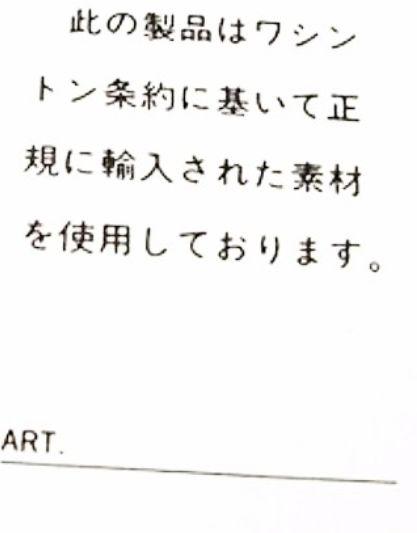 此の製品はワシン
トン条約に基いて正
規に輸入された素材
を使用しております。
ART.